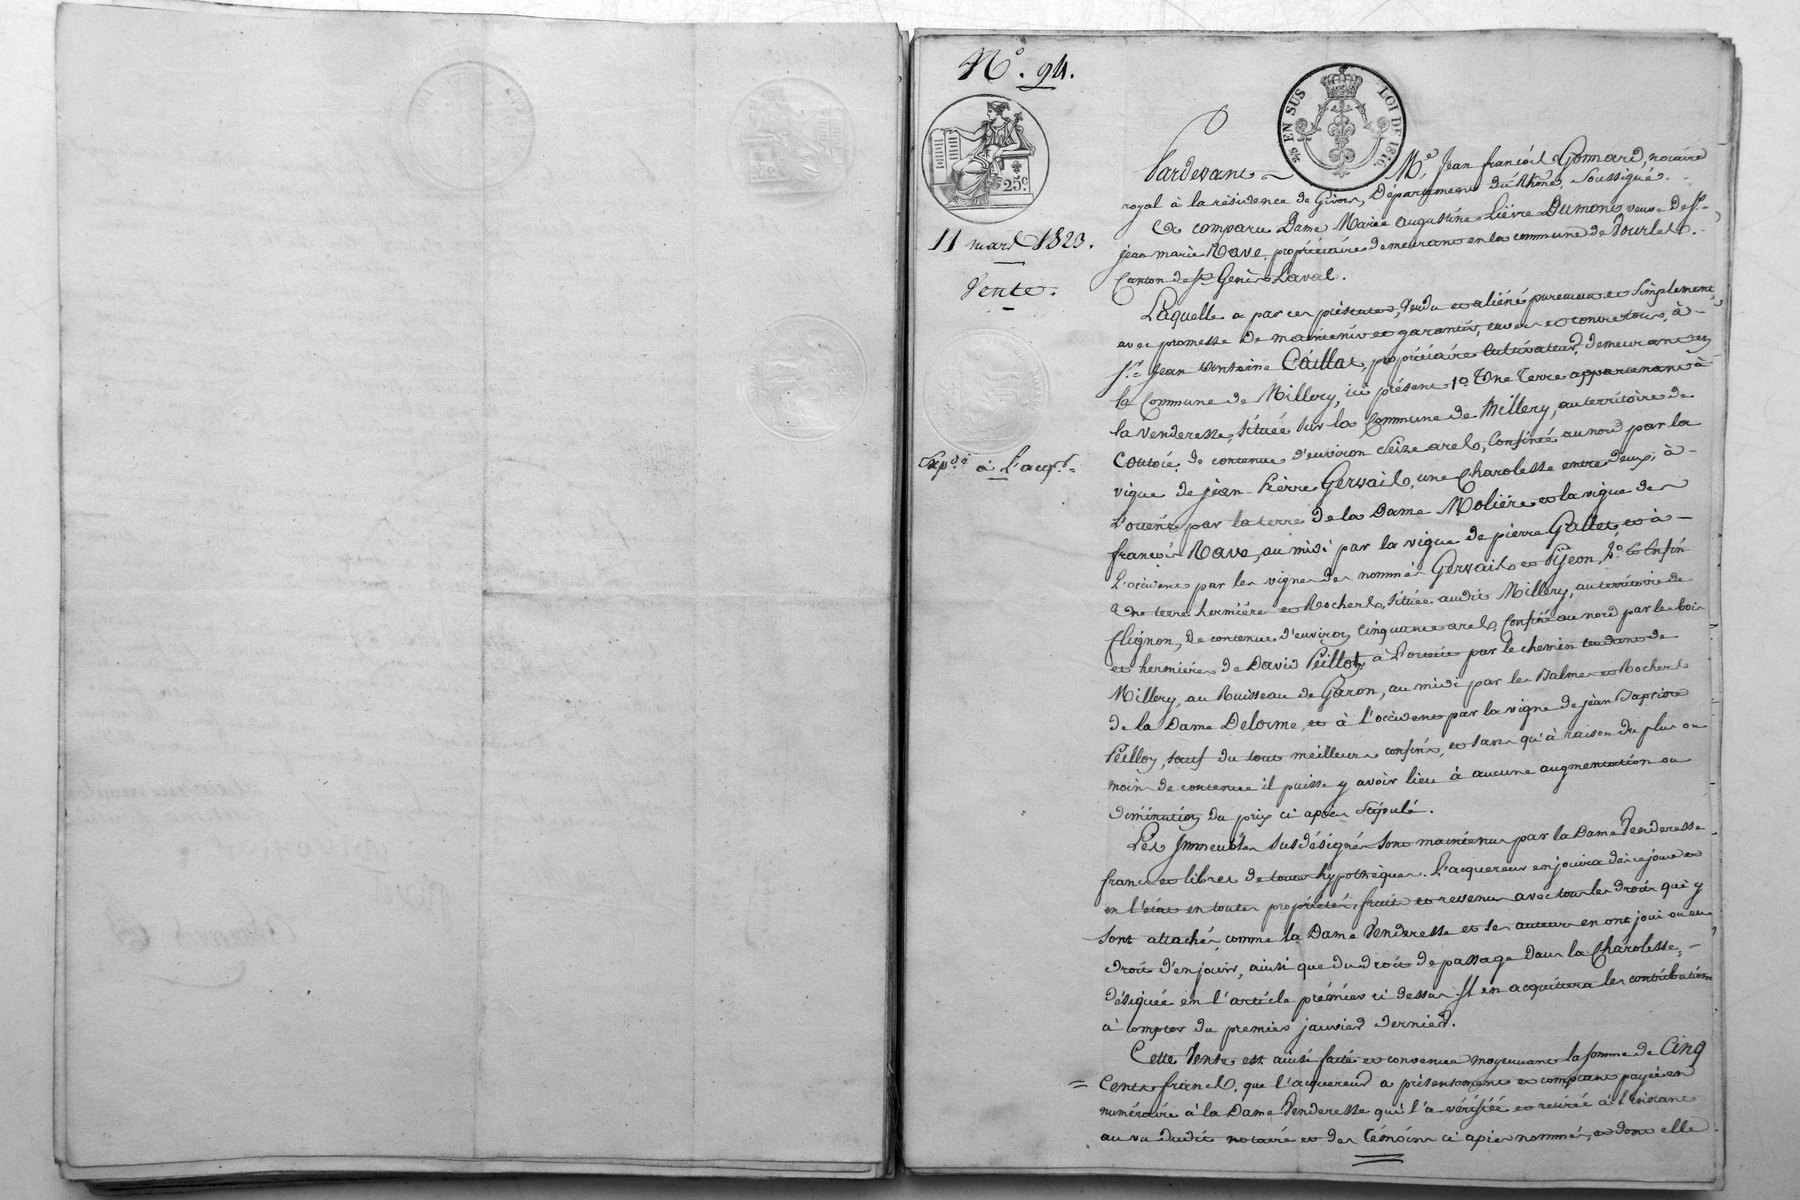 N° 94.
25c
11 mars 1823.
Vente.
Expé. à l'acqr.
2/5 EN SUS LOI DE 1816.
Pardevant Me. Jean françois Gonnard, notaire
royal à la résidence de Givors, Département du Rhône, Soussigné.
A comparu Dame Marie augustine Lièvre Dumont veuve de Sr.
jean marie Rave, propriétaire demeurant en la commune de Vourles.
Canton de St Genis Laval.
Laquelle a par ces présentes, Vendu et aliéné purement et Simplement
avec promesse de maintenir et garantir, envers et contre tous, à
Sr. Jean Antoine Caillat, propriétaire Cultivateur, demeurant en
la Commune de Millery, ici présent 1° Une Terre appartenant à
la Venderesse, Située Sur la Commune de Millery, au territoire de
de contenue d'environ Seize ares, Confinée au nord par la
vigne de jean Pierre Gervais, une Charolesse entre deux, à
L'orient par la terre de la Dame Molière et la vigne de
françois Rave, au midi par la vigne de pierre Gallet et à
L'occident par les vignes des nommés Gervais et Pijeon, 2° Et Enfin
Une terre hermière et Rochers, Située audit Millery, au territoire de
Flignon, De contenue d'environ Cinquante ares, Confiné au nord par les bois
et hermières de David Peillon, à L'orient par le chemin tendant de
Millery, au Ruisseau de Garon, au midi par les Balmes et Rochers
de la Dame Delorme, et à l'occident par la vigne de jean Baptiste
Peillon, sauf du tout meilleurs confins, et sans qu'à raison du plus ou
moins de contenue il puisse y avoir lieu à aucune augmentation ou
diminution du prix ci après Stipulé.
Les Immeubles susdésignés Sont maintenus par la Dame Venderesse
francs et libres de toutes hypothèques. L'acquereur en jouira dès ce jour et
en l'état en toutes propriétés, fruits et revenus avec tous les droits qui y
Sont attachés, comme la Dame Venderesse et Ses auteurs en ont joui ou eu
droit d'en jouir, ainsi que du droit de passage dans la Charolesse,
désignée en l'article prémier ci dessus. Il en acquittera les contributions
à compter du premier janvier dernier.
Cette Vente est ainsi faite et convenue moyennant la somme de Cinq
Cents francs, que l'acquereur a présentement et comptant payée en
numéraire à la Dame Venderesse qui l'a vérifiée et retirée à l'instant
au vu dudit notaire et des témoins ci après nommés, et dont elle